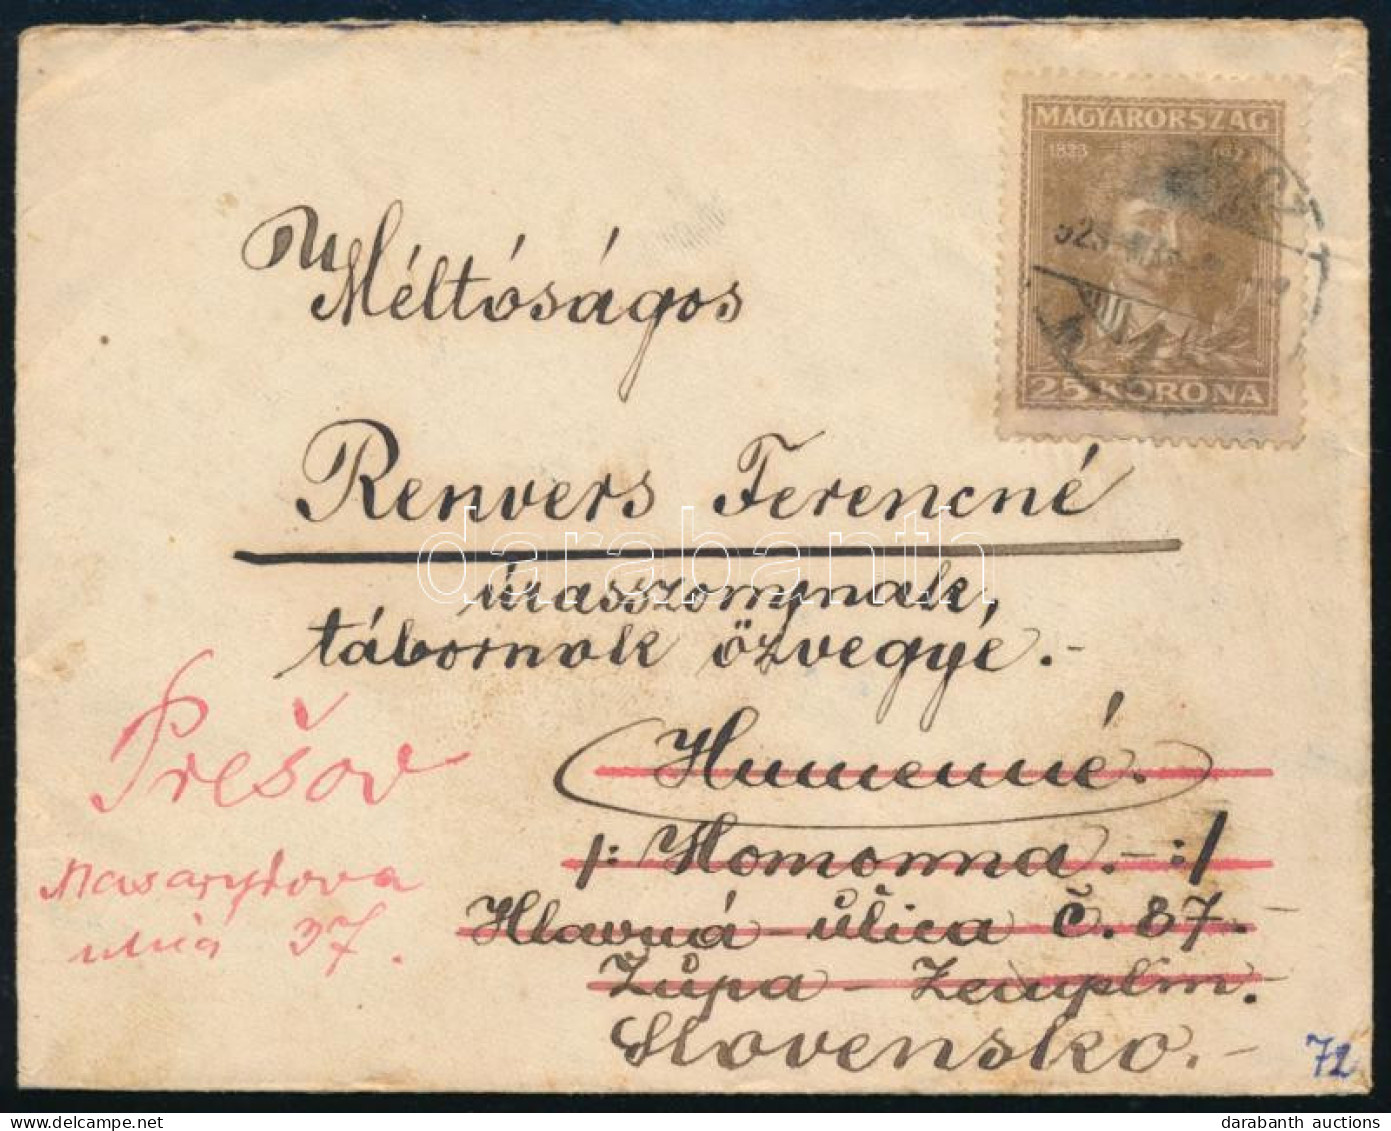 MAGYARORSZÁG
1823 1923
25 KORONA
Méltóságos
Renvers Ferencné
úrasszonynak,
tábornok özvegye.-
Prešov
Masarykova
ulica 37.
Humenné.
/: Homonna.- :/
Hlavná ulica č. 87.
Župa - Zemplin.-
Slovensko.-
72
darabanth
darabanth auctions